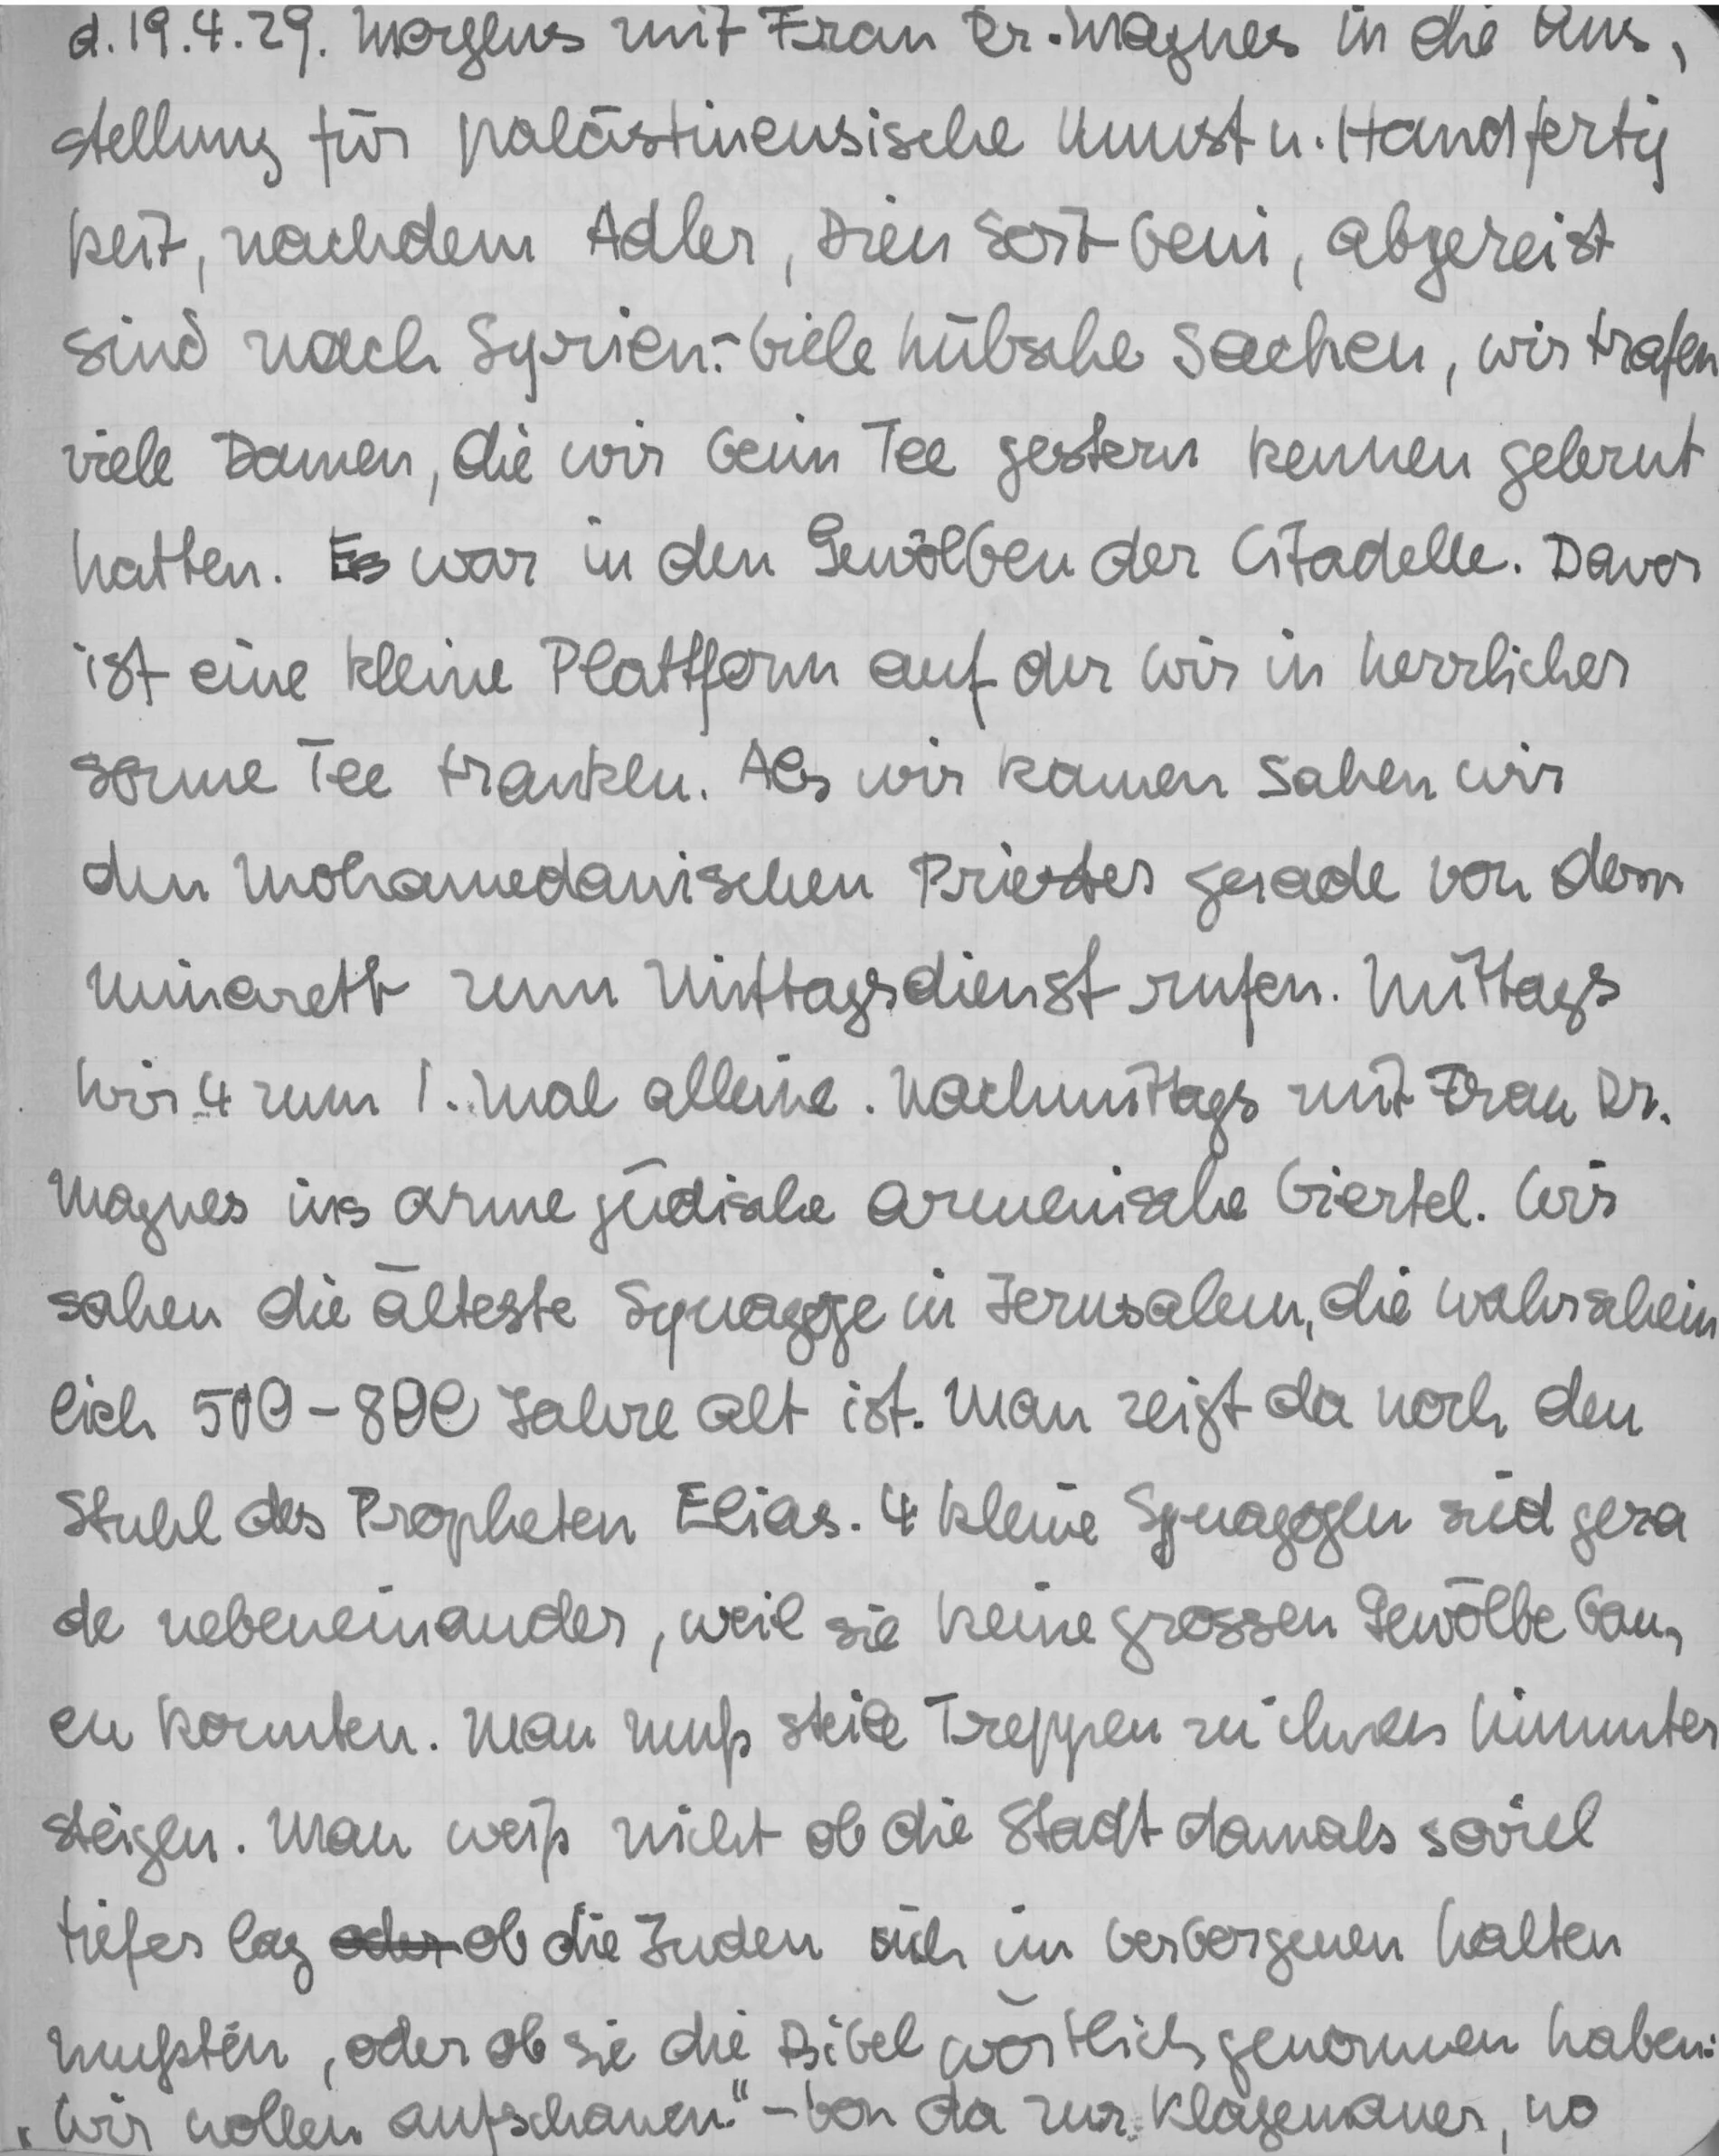 d. 19.4.29. Morgens mit Frau Dr. Magnes in die Aus,
stellung für palästinensische Kunst u. Handfertig
keit, nachdem Adler, abgereist
sind nach Syrien.- Viele hübsche Sachen, wir trafen
viele Damen, die wir beim Tee gestern kennen gelernt
hatten. Es war in den Gewölben der Citadelle. Davor
ist eine kleine Plattform auf der wir in herrlicher
Sonne Tee tranken. Als wir kamen sahen wir
den Mohamedanischen Priester gerade von dem
Minareth zum Mittagsdienst rufen. Mittags
wir 4 zum 1. Mal alleine. Nachmittags mit Frau Dr.
Magnes ins arme jüdische armenische Viertel. Wir
sahen die älteste Synagoge in Jerusalem, die wahrschein
lich 500-800 Jahre alt ist. Man zeigt da noch den
Stuhl des Propheten Elias. 4 kleine Synagogen sind gera
de nebeneinander, weil sie keine grossen Gewölbe bau,
en konnten. Man muß steile Treppen zu ihnen hinunter
steigen. Man weiß nicht ob die Stadt damals soviel
tiefer lag oder ob die Juden sich im verborgenen halten
mußten, oder ob sie die Bibel wörtlich genommen haben:
"Wir wollen aufschauen." - Von da zur Klagemauer, wo